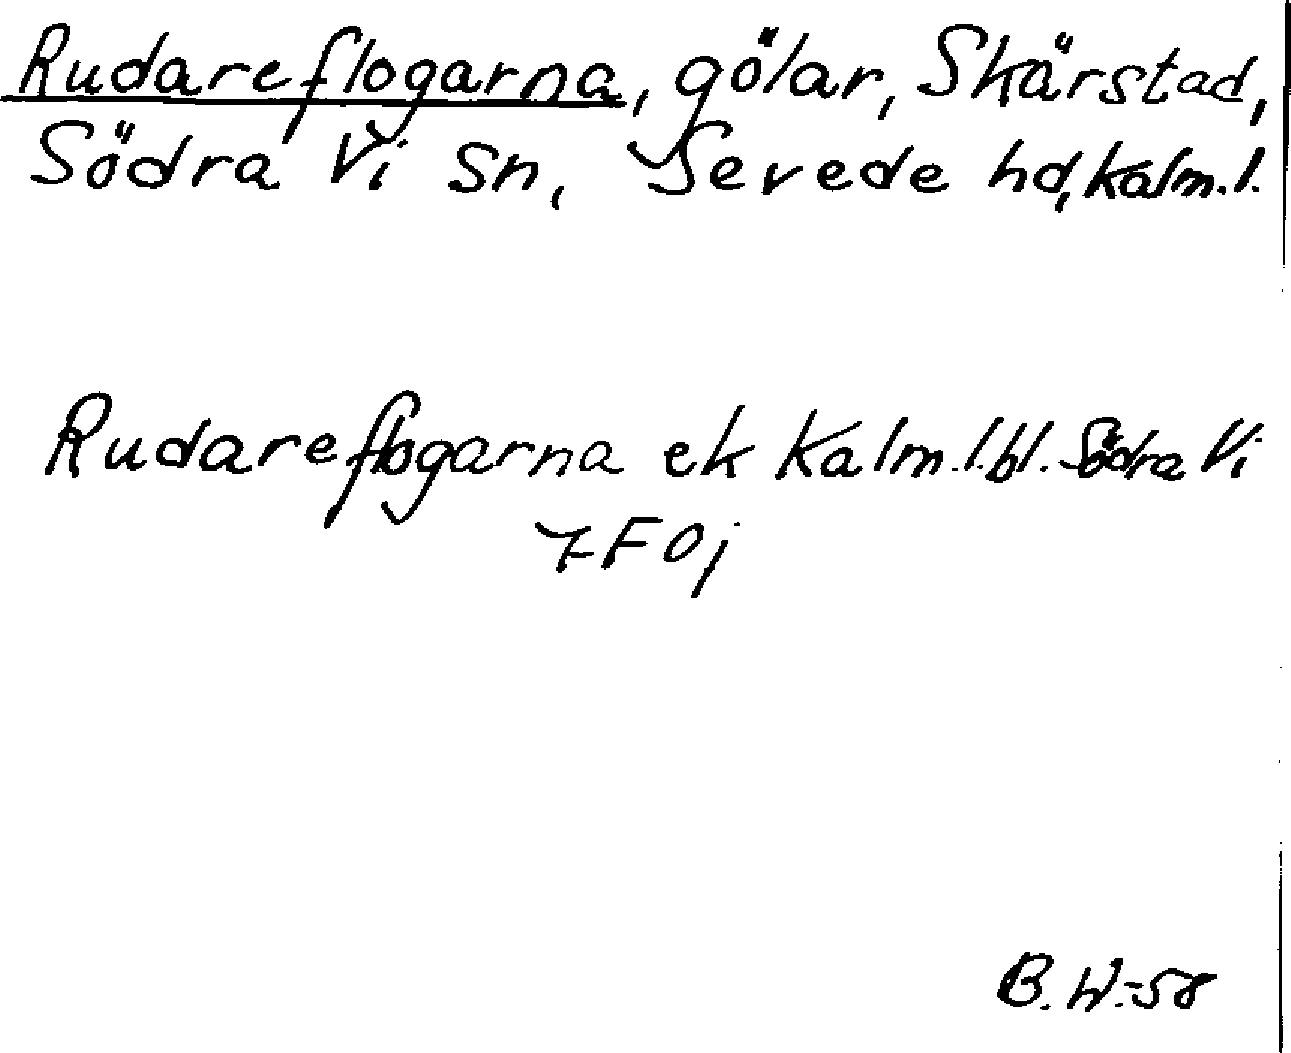 Rudareflogarna, gölar, Skärstad,
Södra Vi sn, Sevede hd, Kalm. l.
Rudareflogarna ek Kalm. l. bl. Södra Vi
7F0j
B. W.-58